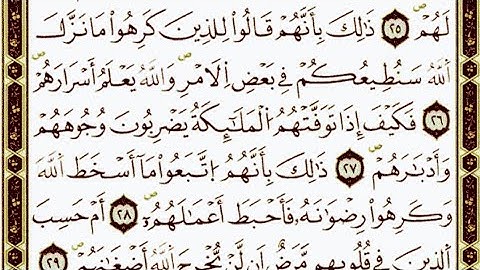 لَهُمْ ٢٥ ذَٰلِكَ بِأَنَّهُمْ قَالُوا لِلذِينَ كَرِهُوا مَا نَزَّلَ
اَللَّهُ سَنُطِيعُكُمْ فِي بَعْضِ اِلَامْرِ وَاللَّهُ يَعْلَمُ أَسْرَارَهُمْ
٢٦ فَكَيْفَ إِذَا تَوَفَّتْهُمُ الْمَلَٰٓئِكَةُ يَضْرِبُونَ وُجُوهَهُمْ
وَأَدْبَٰرَهُمْ ٢٧ ذَٰلِكَ بِأَنَّهُمُ اتَّبَعُوا مَا أَسْخَطَ اَللَّهَ
وَكَرِهُوا رِضْوَٰنَهُ فَأَحْبَطَ أَعْمَٰلَهُمْ ٢٨ أَمْ حَسِبَ
اَلذِينَ فِي قُلُوبِهِم مَّرَضٌ أَن لَّنْ يُّخْرِجَ اَللَّهُ أَضْغَٰنَهُمْ ٢٩